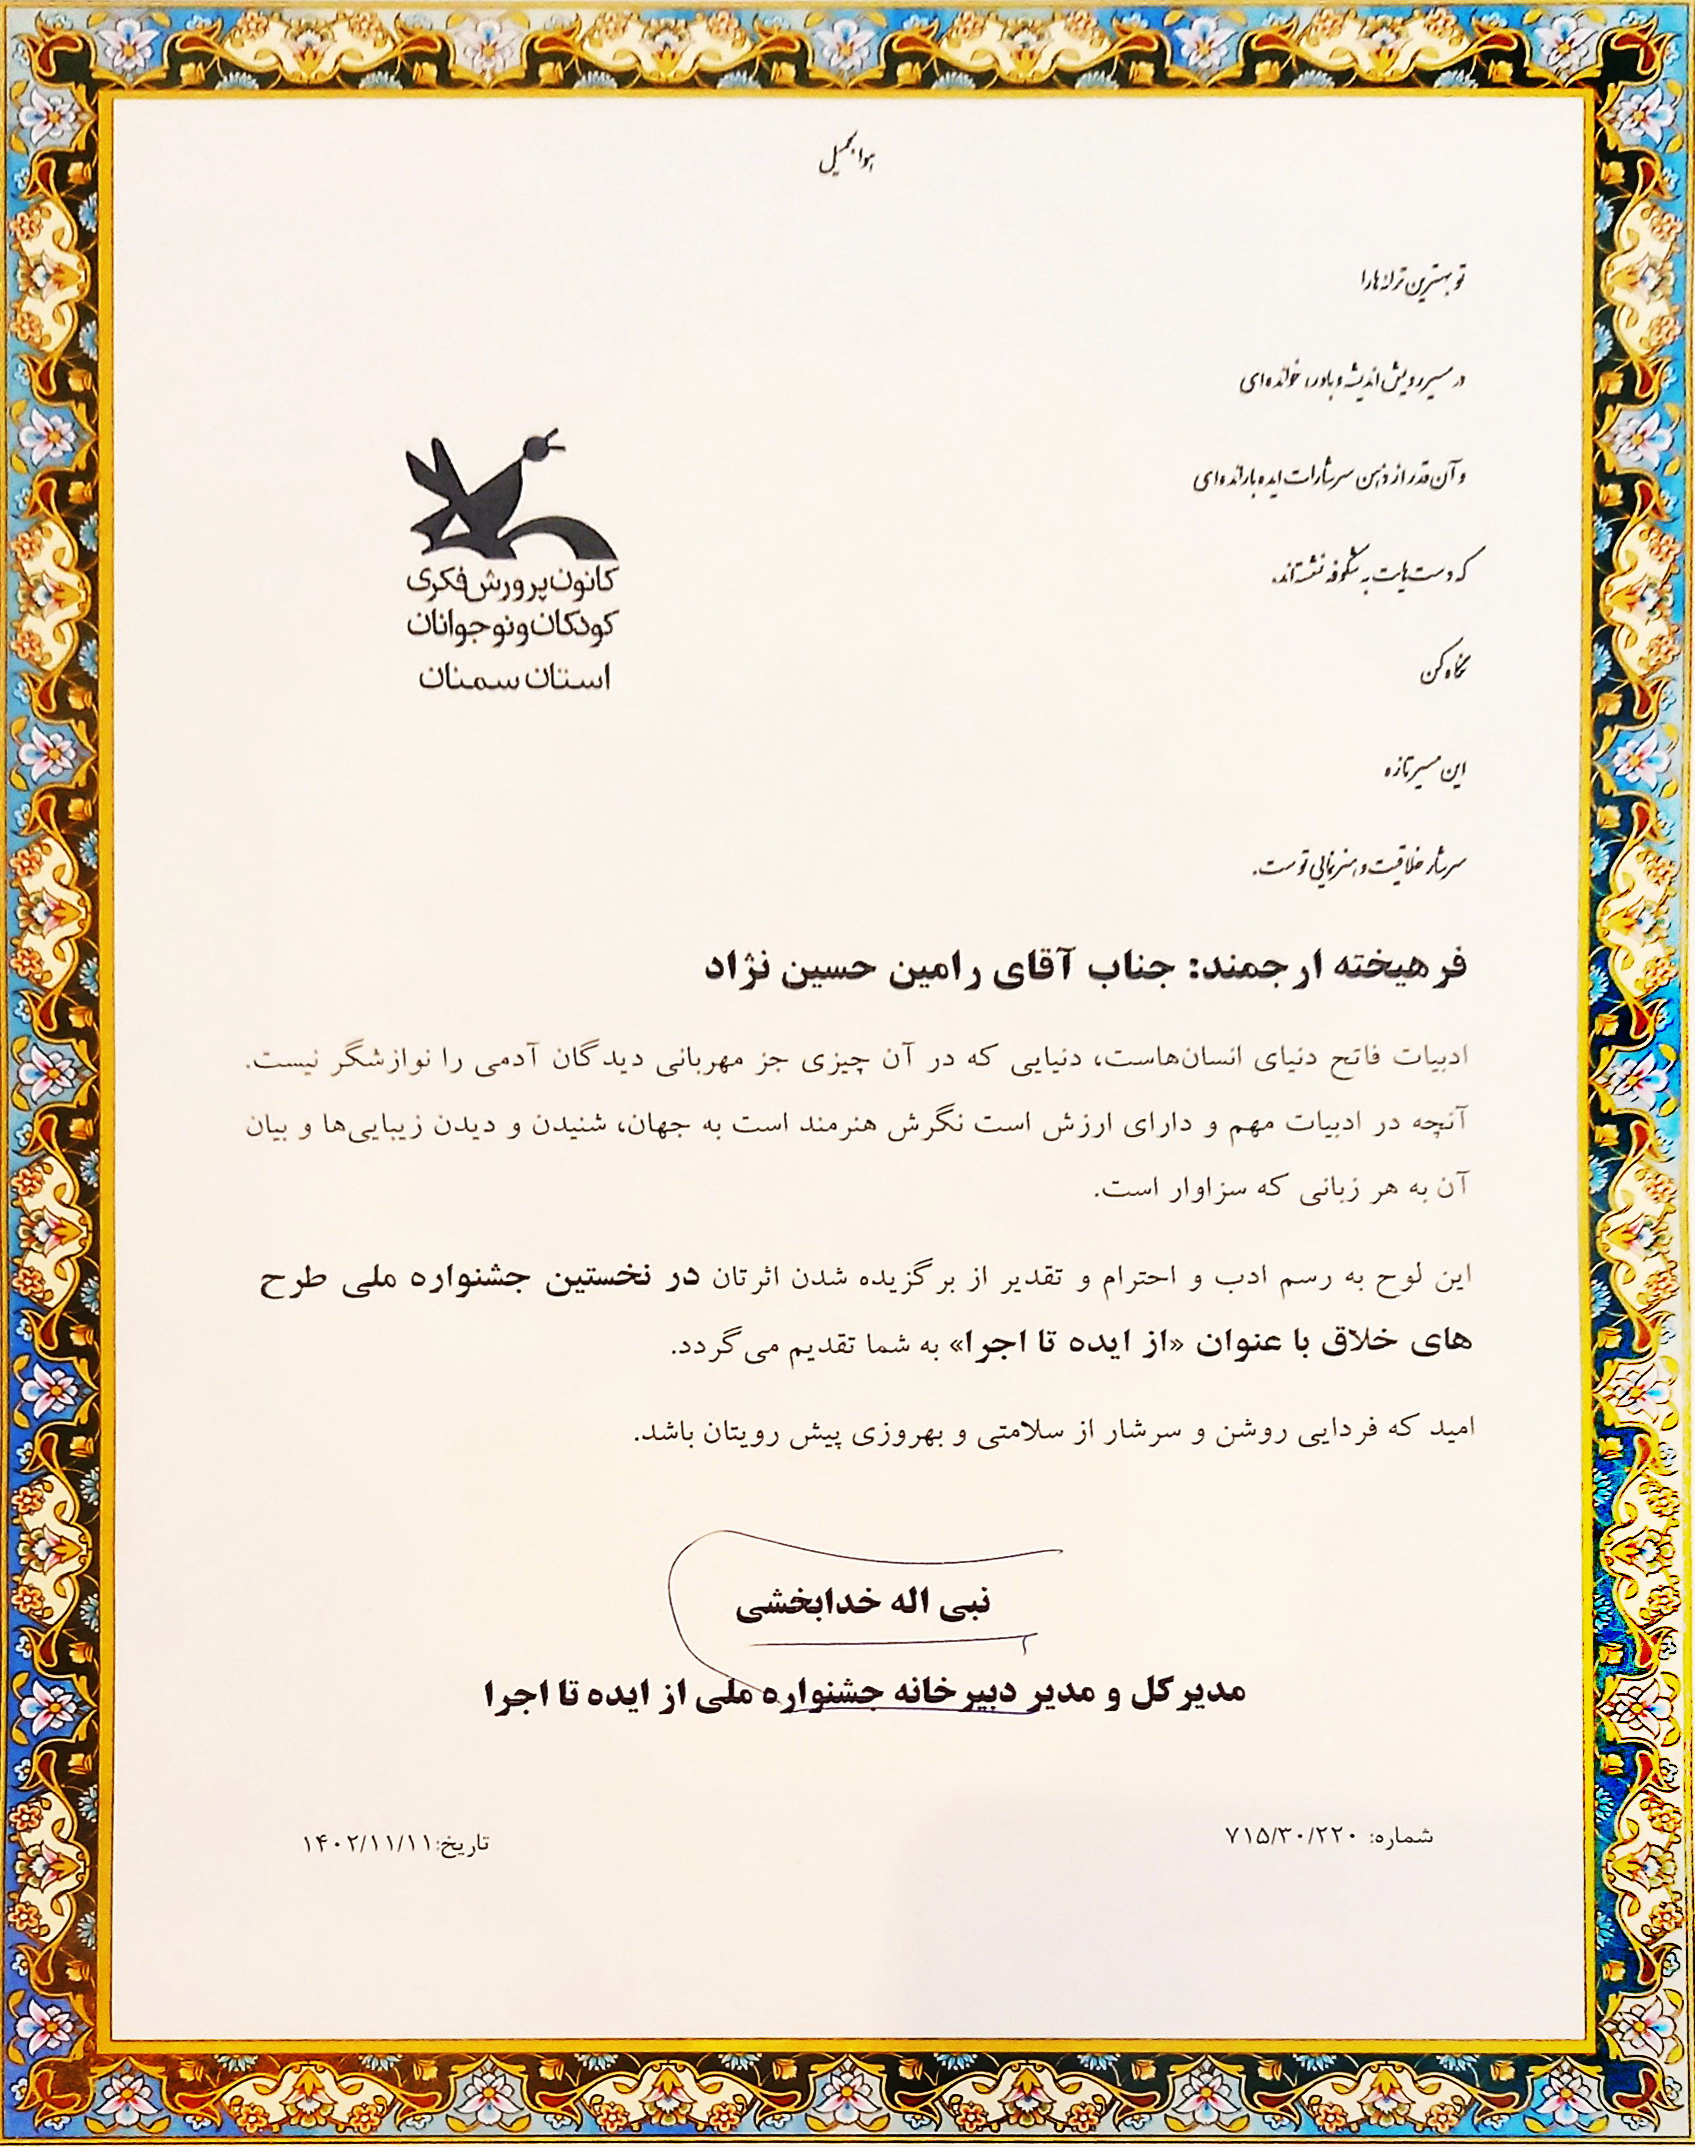 هوالجمیل
تو بهترین ترانه‌ها را
در مسیر رویش اندیشه و باور، خوانده‌ای
و آن قدر از ذهن سرشارت ایده بارانده‌ای
که دست‌هایت به شکوفه نشسته‌اند.
نگاه کن
این مسیر تازه
سرشار خلاقیت و هنرنمایی توست.
کانون پرورش فکری
کودکان و نوجوانان
استان سمنان
فرهیخته ارجمند: جناب آقای رامین حسین نژاد
ادبیات فاتح دنیای انسان‌هاست، دنیایی که در آن چیزی جز مهربانی دیدگان آدمی را نوازشگر نیست.
آنچه در ادبیات مهم و دارای ارزش است نگرش هنرمند است به جهان، شنیدن و دیدن زیبایی‌ها و بیان
آن به هر زبانی که سزاوار است.
این لوح به رسم ادب و احترام و تقدیر از برگزیده شدن اثرتان در نخستین جشنواره ملی طرح
های خلاق با عنوان «از ایده تا اجرا» به شما تقدیم می‌گردد.
امید که فردایی روشن و سرشار از سلامتی و بهروزی پیش رویتان باشد.
نبی اله خدابخشی
مدیرکل و مدیر دبیرخانه جشنواره ملی از ایده تا اجرا
شماره: ۷۱۵/۳۰/۲۲۰
تاریخ:۱۴۰۲/۱۱/۱۱